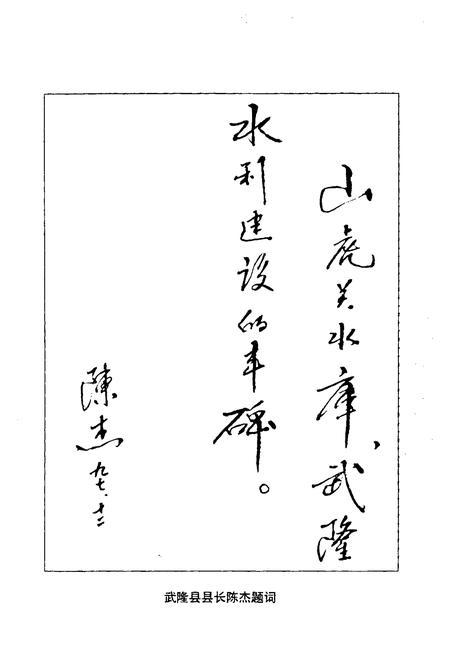 山虎关水库、武隆
水利建设的丰碑。
陈杰
九七、十二
武隆县县长陈杰题词